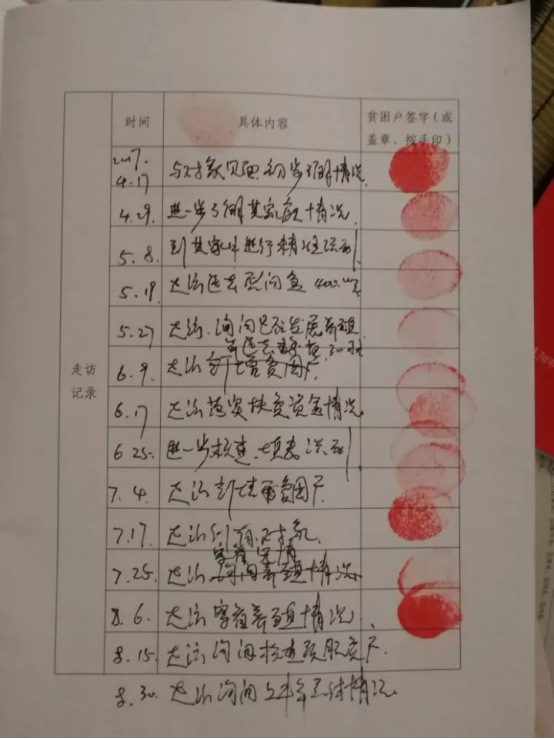 时间 具体内容 贫困户签字(或盖章、按手印)
走访记录
2017.
4.17 与对象见面,初步了解情况
4.29. 进一步了解其家庭情况
5.8. 到其家中进行精准识别
5.19. 走访送去慰问金 400.00元
5.27 走访.询问是否发展养殖
6.9. 走访新增贫困户
6.17 走访落实扶贫资金情况
6.25. 进一步核查、识别
7.4. 走访新增贫困户
7.17. 走访对象
7.25. 走访 查看 养殖情况
8.6. 走访察看养殖情况.
8.15. 走访询问核查预脱贫户.
8.30. 走访询问上半年总体情况